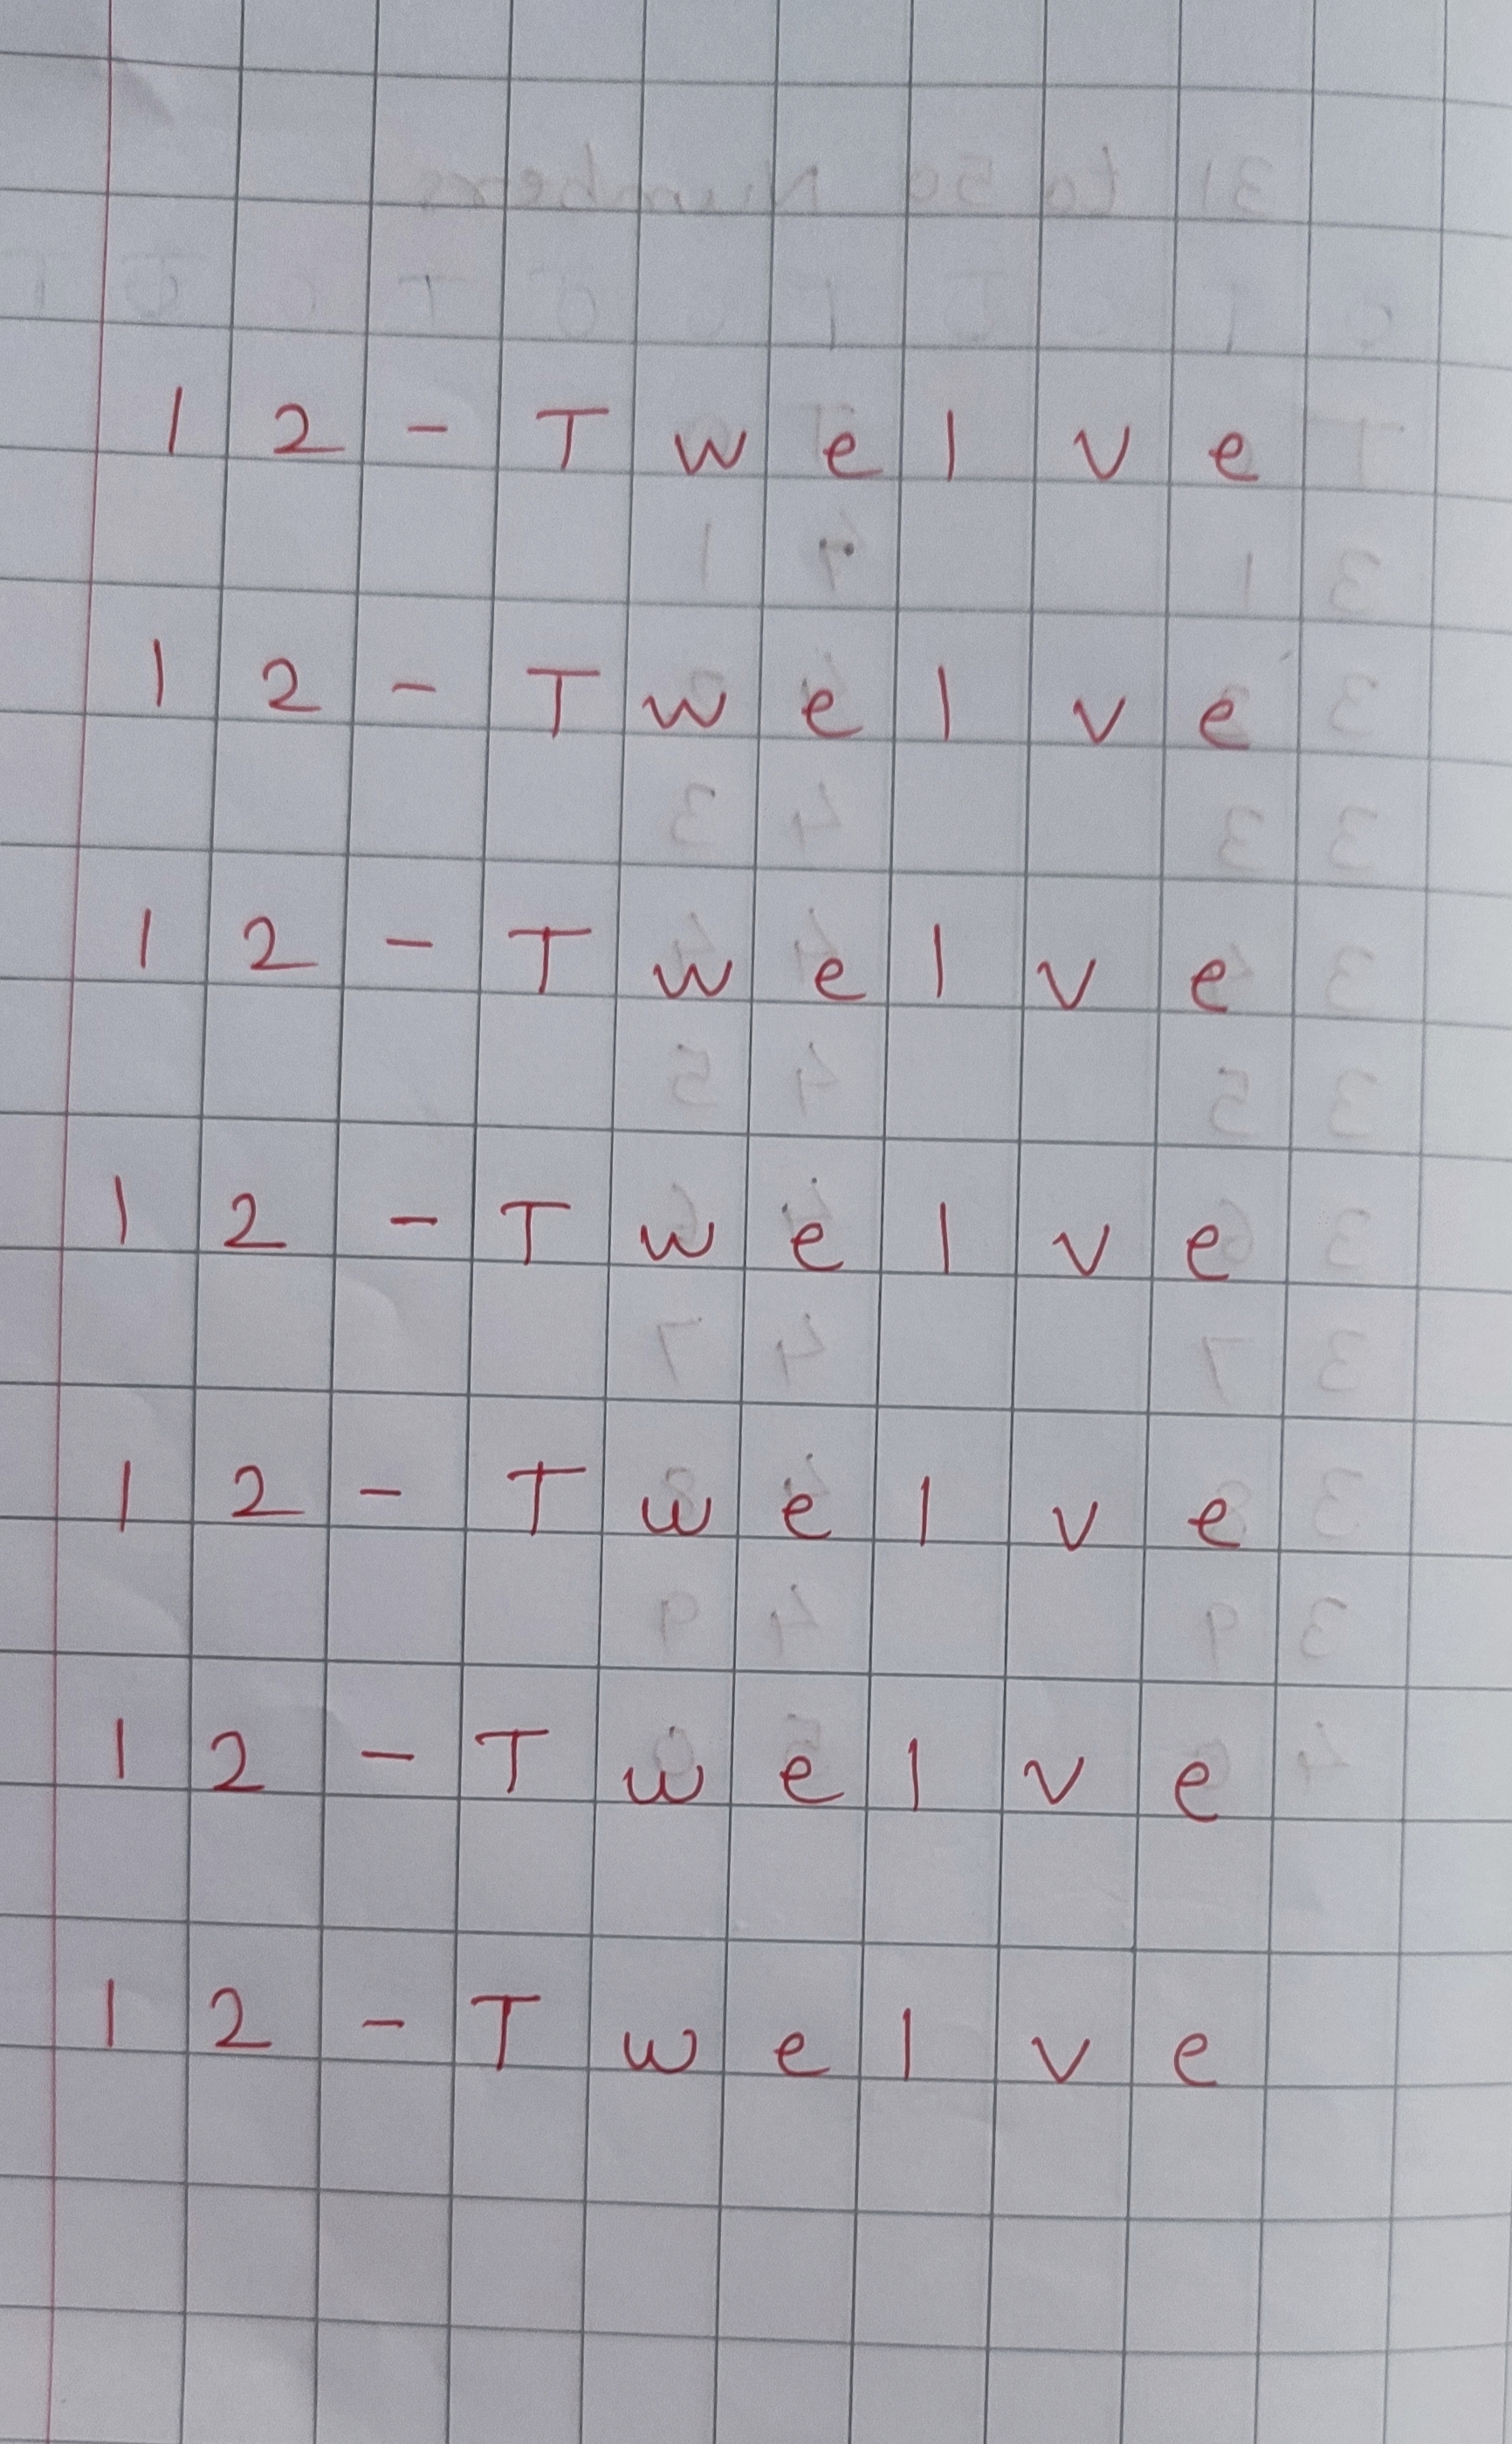 31 to 50 Numbers
12 - Twelve
12 - Twelve
12 - Twelve
12 - Twelve
12 - Twelve
12 - Twelve
12 - Twelve